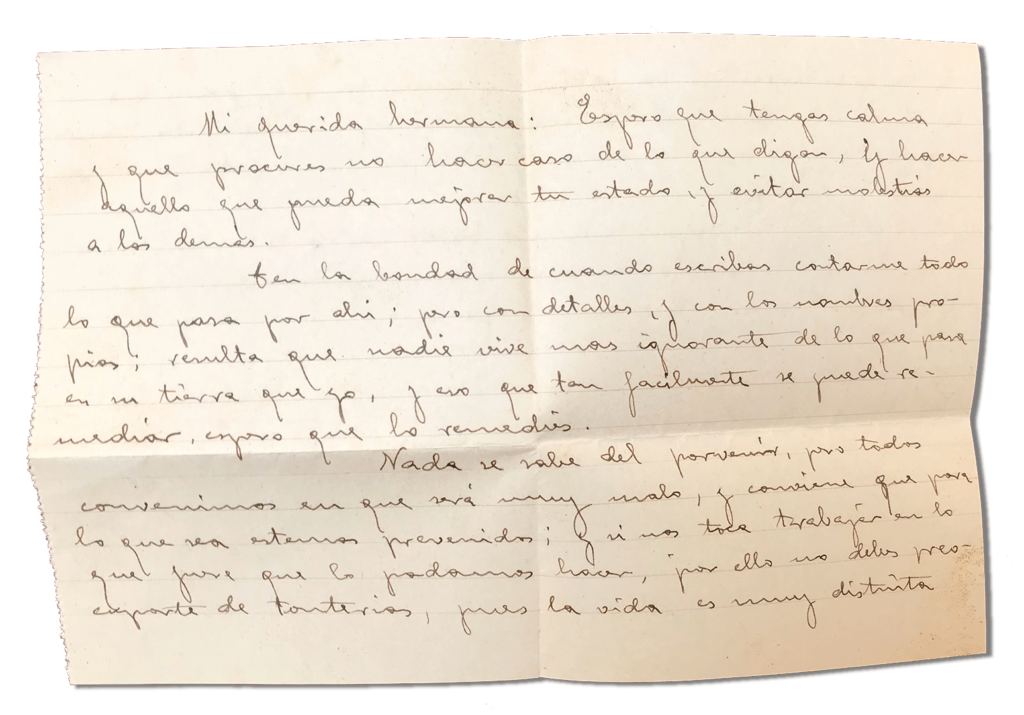 Mi querida hermana: Espero que tengas calma
y que procures no hacer caso de lo que digan, y hacer
aquello que pueda mejorar tu estado, y evitar molestias
a los demas.
Ten la bondad de cuando escribas contarme todo
lo que pasa por ahi; pero con detalles, y con los nombres pro-
pios; resulta que nadie vive mas ignorante de lo que pasa
en su tierra que yo, y eso que tan facilmente se puede re-
mediar, espero que lo remedies.
Nada se sabe del porvenir, pro todos
convenimos en que será muy malo, y conviene que para
lo que sea estemos prevenidos; y si nos toca trabajar en lo
que fuere que lo podamos hacer, por ello no debes preo-
cuparte de tonterias, pues la vida es muy distinta